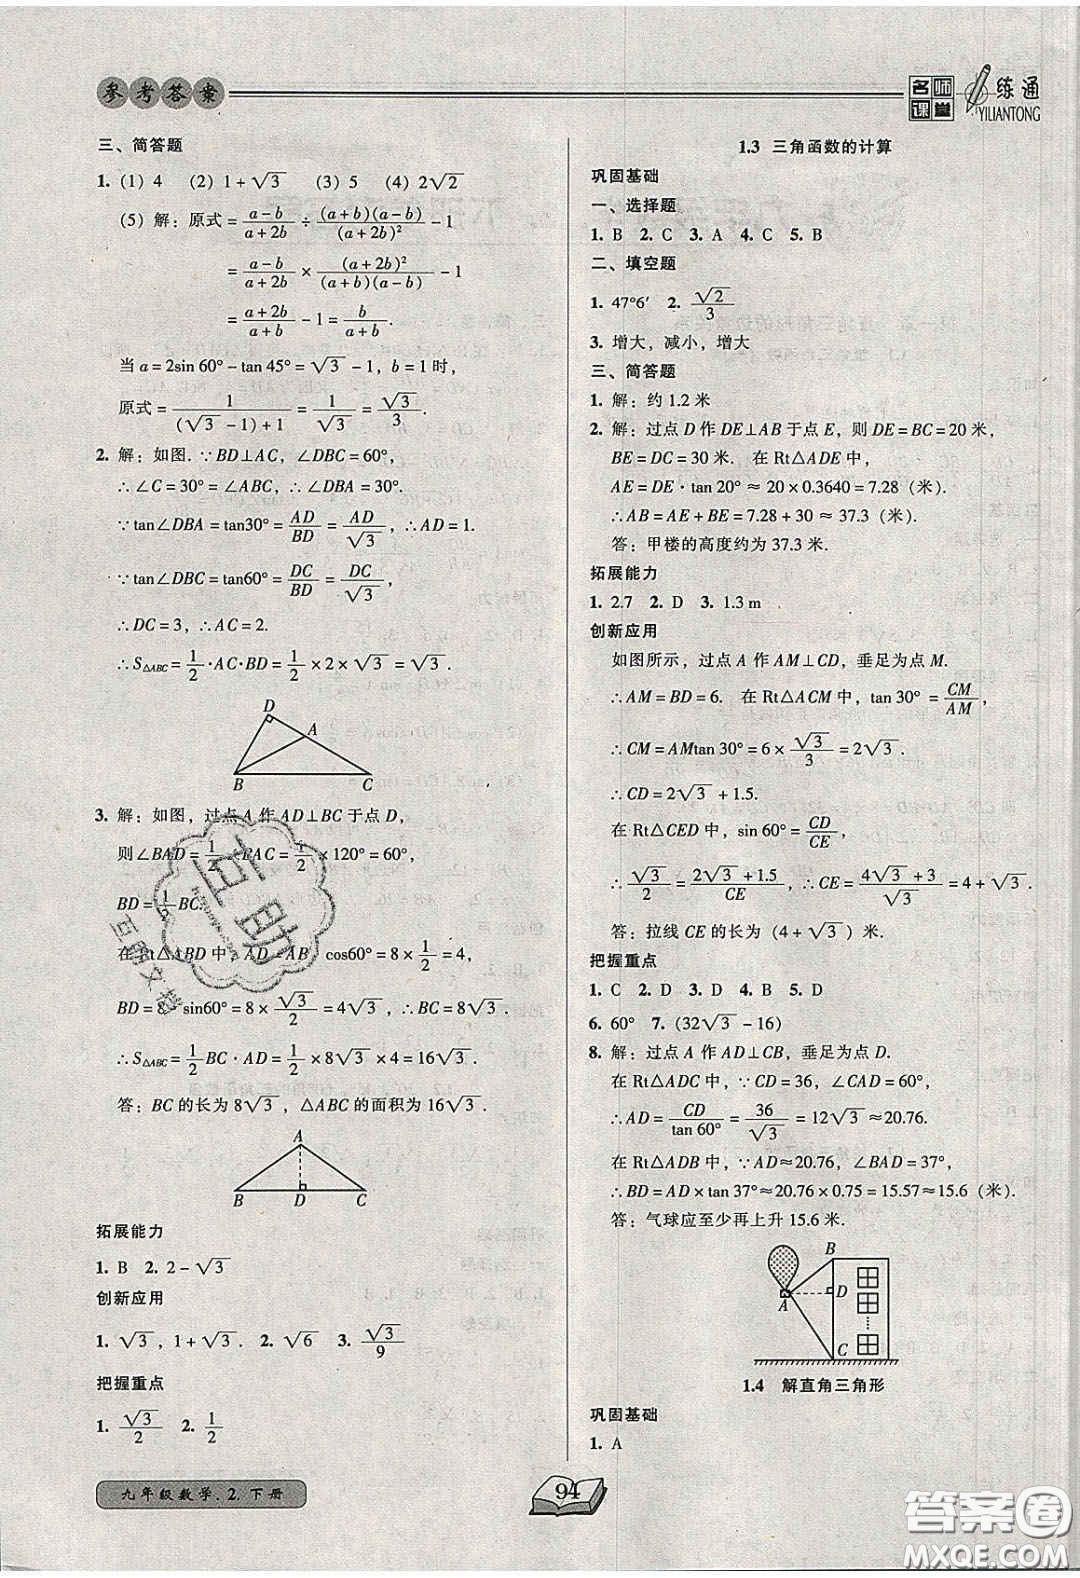 参考答案
名师课堂 一练通
YILIANTONG
三、简答题
1. (1) 4 (2) 1+√3 (3) 5 (4) 2√2
(5) 解：原式 = (a-b)/(a+2b) ÷ (a+b)(a-b)/(a+2b)² - 1
= (a-b)/(a+2b) × (a+2b)²/(a+b)(a-b) - 1
= (a+2b)/(a+b) - 1 = b/(a+b).
当 a=2sin 60°-tan 45°=√3-1, b=1时,
原式 = 1/((√3-1)+1) = 1/√3 = √3/3.
2. 解：如图. ∵BD⊥AC, ∠DBC=60°,
∴∠C=30°=∠ABC, ∴∠DBA=30°.
∵tan∠DBA=tan30°=AD/BD=AD/√3, ∴AD=1.
∵tan∠DBC=tan60°=DC/BD=DC/√3,
∴DC=3, ∴AC=2.
∴S△ABC=1/2·AC·BD=1/2×2×√3=√3.
D
A
B C
3. 解：如图, 过点 A 作 AD⊥BC 于点 D,
则∠BAD=1/2∠BAC=1/2×120°=60°,
BD=1/2BC.
在Rt△ABD中, AD=AB·cos60°=8×1/2=4,
BD=8·sin60°=8×√3/2=4√3, ∴BC=8√3.
∴S△ABC=1/2BC·AD=1/2×8√3×4=16√3.
答：BC的长为8√3, △ABC的面积为16√3.
A
B D C
拓展能力
1. B 2. 2-√3
创新应用
1. √3, 1+√3. 2. √6 3. √3/9
把握重点
1. √3/2 2. 1/2
1.3 三角函数的计算
巩固基础
一、选择题
1. B 2. C 3. A 4. C 5. B
二、填空题
1. 47°6′ 2. √2/3
3. 增大, 减小, 增大
三、简答题
1. 解：约1.2米
2. 解：过点 D 作 DE⊥AB于点 E, 则 DE=BC=20米,
BE=DC=30米. 在Rt△ADE中,
AE=DE·tan 20°≈20×0.3640=7.28（米）.
∴AB=AE+BE=7.28+30≈37.3（米）.
答：甲楼的高度约为37.3米.
拓展能力
1. 2.7 2. D 3. 1.3 m
创新应用
如图所示, 过点 A 作 AM⊥CD, 垂足为点 M.
∴AM=BD=6. 在Rt△ACM中, tan 30°=CM/AM,
∴CM=AMtan 30°=6×√3/3=2√3.
∴CD=2√3+1.5.
在Rt△CED中, sin 60°=CD/CE,
∴√3/2=(2√3+1.5)/CE, ∴CE=(4√3+3)/√3=4+√3.
答：拉线 CE 的长为（4+√3）米.
把握重点
1. C 2. D 3. D 4. B 5. D
6. 60° 7. (32√3-16)
8. 解：过点 A 作 AD⊥CB, 垂足为点 D.
在Rt△ADC中, ∵CD=36, ∠CAD=60°,
∴AD=CD/tan 60°=36/√3=12√3≈20.76.
在Rt△ADB中, ∵AD≈20.76, ∠BAD=37°,
∴BD=AD×tan 37°≈20.76×0.75=15.57≈15.6（米）.
答：气球应至少再上升15.6米.
B
A D
C
1.4 解直角三角形
巩固基础
1. A
九年级数学. 2. 下册
94
互助
互助文档
答案圈
MXQE.COM